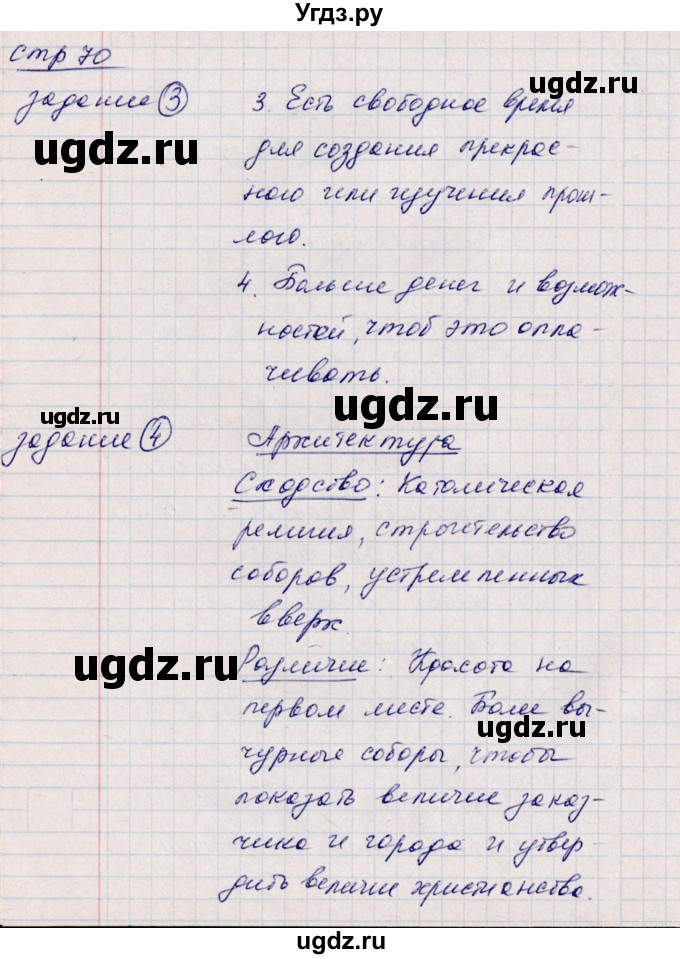 Угдз.ру
стр 70
задание 3 3. Есть свободное время
ugdz.ru
для создания прекрас-
ugdz.ru
ного или изучения прош-
лого.
4. Больше денег и возмож-
ностей, чтоб это опла-
чивать.
ugdz.ru
ugdz.ru
задание 4 Архитектура
Сходство: Католическая
религия, строительство
соборов, устремленных
вверх.
ugdz.ru
Различие: Красота на
первом месте. Более вы-
ugdz.ru
чурные соборы, чтобы
показать величие заказ-
чика и города и утвер-
дить величие христианства.
ugdz.ru